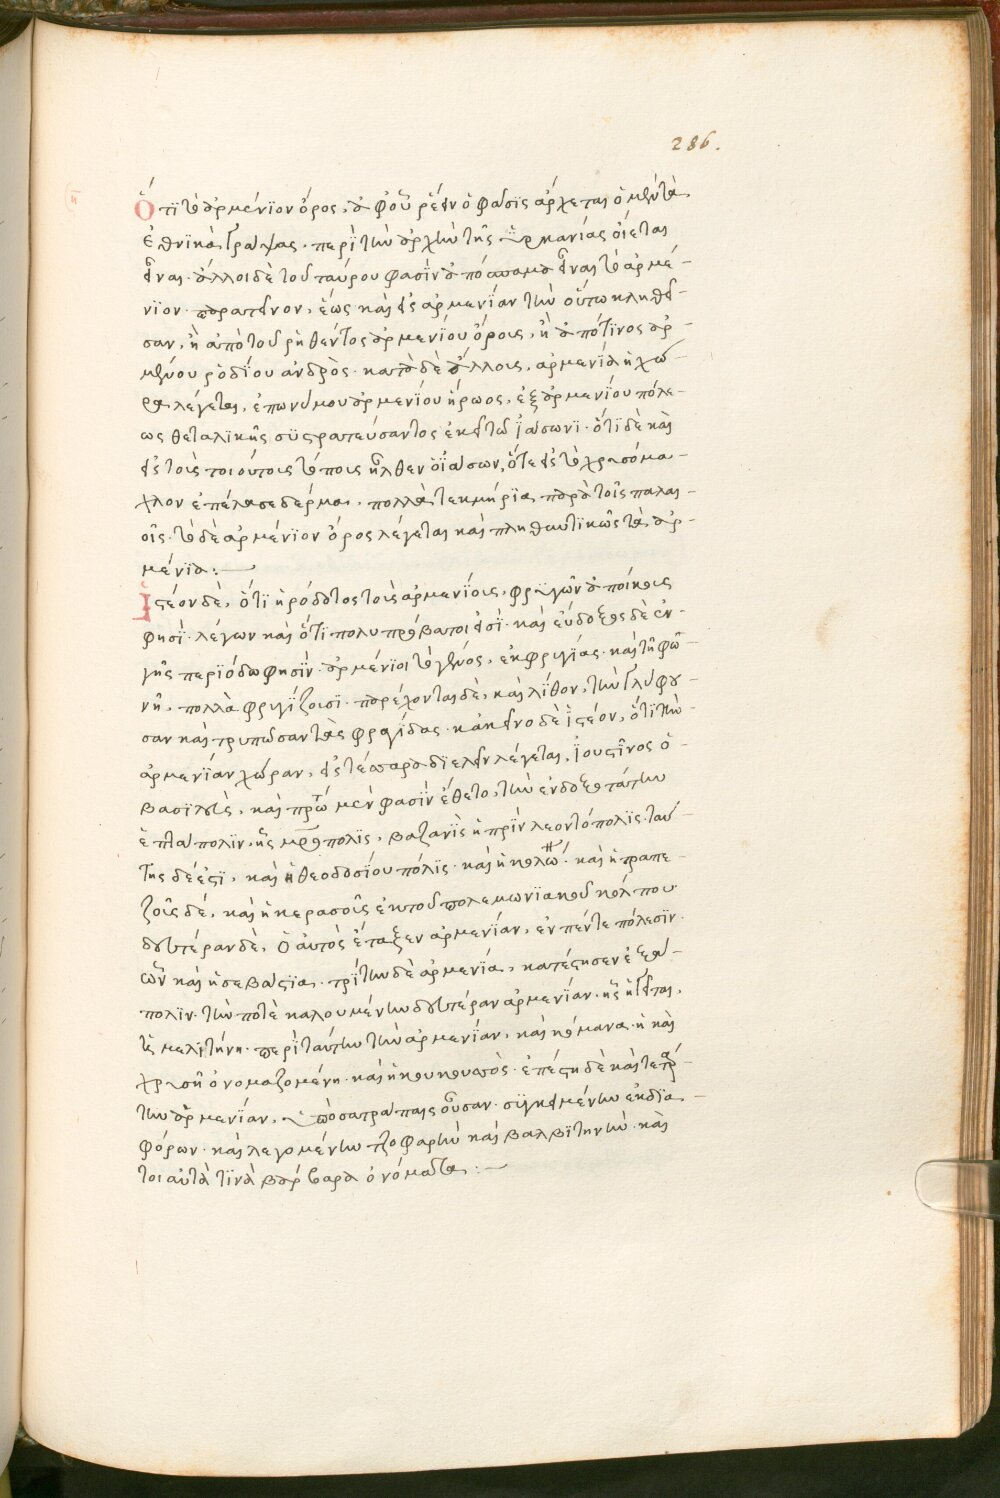 286.
Ὅτι τὸ ἀρμένιον ὄρος, ἀφ' οὗ ῥεῖν ὁ φάσις ἄρχεται ὁ μὲν τὰ
ἐθνικὰ γράψας. περὶ τὴν ἀρχὴν τῆς ὑρκανίας οἴεται
εἶναι. ἄλλοι δὲ τοῦ ταύρου φασὶν ἀπόσπασμα εἶναι τὸ ἀρμέ-
νιον παρατεῖνον, ἕως καὶ εἰς ἀρμενίαν τὴν οὕτω κληθεῖ-
σαν, ἢ ἀπὸ τοῦ ῥηθέντος ἀρμενίου ὄρους, ἢ ἀπό τινος ἀρ-
μένου ῥοδίου ἀνδρὸς. κατὰ δὲ ἄλλους, ἀρμενία ἡ χώ-
ρα λέγεται, ἐπωνύμου ἀρμενίου ἥρωος, ἐξ ἀρμενίου πόλε-
ως θεταλικῆς συστρατεύσαντος ἐκεῖ τῷ ἰάσωνι. ὅτι δὲ καὶ
εἰς τοὺς τοιούτους τόπους ἦλθεν ὁ ἰάσων, ὅτε εἰς τὸ χρυσόμα-
λλον ἐπέλασε δέρμα, πολλὰ τεκμήρια παρὰ τοῖς παλαι-
οῖς. τὸ δὲ ἀρμένιον ὄρος λέγεται καὶ πληθυντικῶς τὰ ἀρ-
μένια:
Ἰστέον δὲ, ὅτι ἡρόδοτος τοὺς ἀρμενίους, φρυγῶν ἀποίκους
φησὶ. λέγων καὶ ὅτι πολυπρόβατοι εἰσὶ. καὶ εὔδοξος δὲ ἐν
γῆς περιόδῳ φησὶν. ἀρμένιοι τὸ γένος, ἐκ φρυγίας. καὶ τῇ φω-
νῇ, πολλὰ φρυγίζουσι. παρέχονται δὲ, καὶ λίθον, τὴν γλύφου-
σαν καὶ τρυπῶσαν τὰς σφραγίδας. κἀκεῖνο δὲ ἰστέον, ὅτι τὴν
ἀρμενίαν χώραν, εἰς τέσσαρα διελεῖν λέγεται, ἰουστῖνος ὁ
βασιλεὺς, καὶ πρώτ μὲν φασὶν ἔθετο, τὴν ἐνδοξοτάτην
ἑπτάπολιν, ἧς μρόπολις, βαζανὶς ἡ πρὶν λεοντόπολις. ταύ
της δέ ἐστι, καὶ ἡ θεοδοσίου πόλις. καὶ ἡ κολων. καὶ ἡ τραπε-
ζοῦς δὲ, καὶ ἡ κερασοῦς ἐκ τοῦ πολεμωνιακοῦ κόλπου.
δευτέραν δὲ, ὁ αὐτὸς ἔταξεν ἀρμενίαν, ἐν πέντε πόλεσιν.
ὧν καὶ ἡ σεβάστια. τρίτην δὲ ἀρμενία, κατέστησεν ἑξά-
πολιν. τὴν ποτὲ καλουμένην δευτέραν ἀρμενίαν. ἧς ἡγεῖται,
τε μελιτήνη. περὶ ταύτην τὴν ἀρμενίαν, καὶ κόμανα. ἡ καὶ
χρυσῆ ὀνομαζομένη. καὶ ἡ κουκουσὸς. ἐπέστη δὲ καὶ τετάρ
την ἀρμενίαν, ὑπὸ σατράπαις οὖσαν. συγκειμένην ἐκ δια-
φόρων. καὶ λεγομένην τζοφαρὴν καὶ βαλβιτηνὴν. καὶ
τοιαῦτα τινὰ βάρβαρα ὀνόματα: